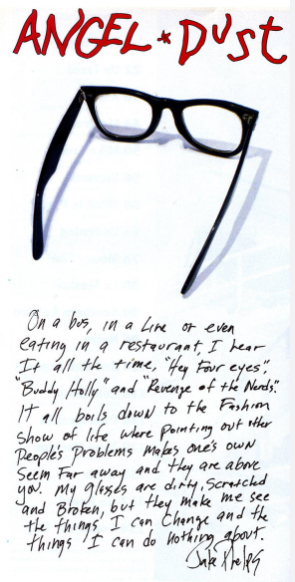 ANGEL * DUST
On a bus, in a Line or even
eating in a restaurant, I hear
It all the time, "Hey Four eyes",
"Buddy Holly" and "Revenge of the Nerds".
IT all boils down to the Fashion
Show of life where Pointing out other
People's Problems makes one's own
Seem Far away and they are above
you. My glasses are dirty, Scratched
and Broken, but they make me see
the things I can Change and the
things I can do nothing about.
Jake Phelps